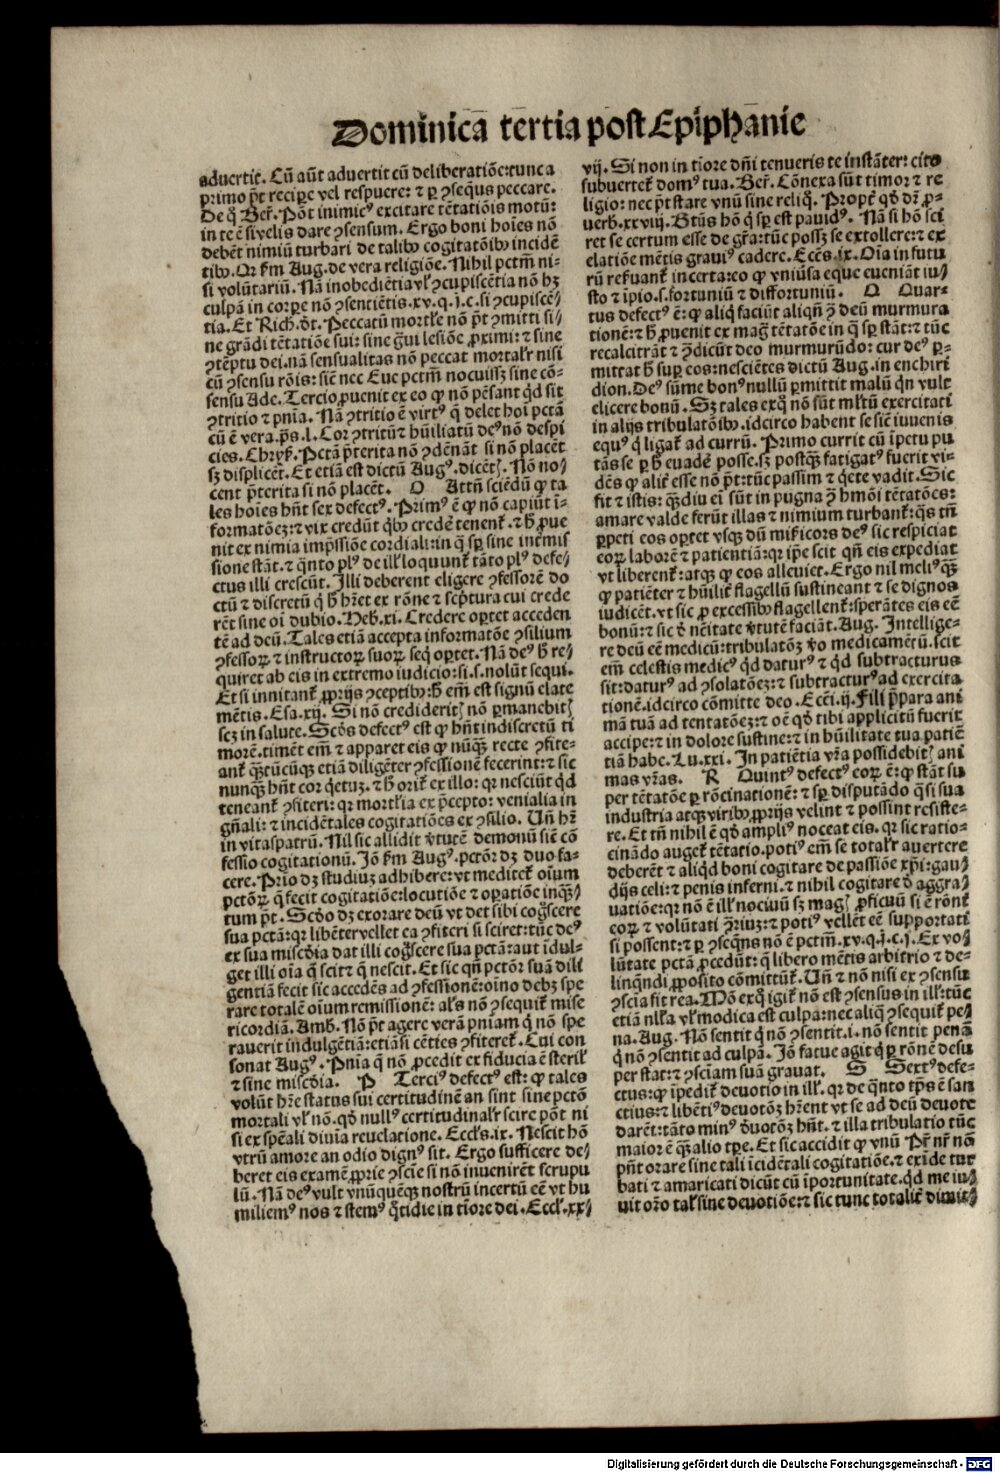 Dominica tertia post Epiphanie
aduertit. Cū aūt aduertit cū deliberatiōe: tunc a
primo p̄t recipe vel respuere: ⁊ ꝑ ꝯsequēs peccare.
De q̄ Ber̄. Pōt inimicꝰ excitare tētatiōis motū:
in te ē si velis dare ꝯsensum. Ergo boni hoīes nō
debēt nimiū turbari de talibꝰ cogitatōibꝰ incidē
tibꝰ. Q2 fm Aug. de vera religiōe. Nihil pctm̄ ni-
si volūtariū. Nā inobediētia vl̓ ꝯcupiscētia nō hꝫ
culpā in corpe nō ꝯsentiētis. xv. q. j. c. si ꝯcupiscē/
tia. Et Rich. d̄t. Peccatū mortl̓e nō p̄t ꝯmitti si/
ne grādi tētatiōe sui: sine g̓ui lesiōe ꝓximi: ⁊ sine
ꝯtēptu dei. nā sensualitas nō peccat mortal̓r nisi
cū ꝯsensu rōis: sic̄ nec Eue pctm̄ nocuissꝫ sine cō-
sensu Ade. Tercio ꝓuenit ex eo ꝙ nō pēsant qd̓ sit
ꝯtritio ⁊ pn̄ia. Nā ꝯtritio ē virtꝰ q̄ delet hoī pctā
cū ē vera. p̄s. l. Cor ꝯtritū ⁊ hūiliatū deꝰ nō despi
cies. Chrys̓. Pctā p̄terita nō ꝯdēnāt si nō placēt
sꝫ displicēt. Et etiā est dictū Augꝰ. dicētꝭ. Nō no/
cent p̄terita si nō placēt. O Attn̄ sciēdū ꝙ ta
les hoīes hn̄t sex defectꝰ. Primꝰ ē ꝙ nō capiūt ī-
formatōeꝫ: ⁊ vix credūt qͥbꝰ credē tenent̄. ⁊ h̓ ꝓue
nit ex nimia imp̄ssiōe cordiali: in q̄ sp̄ sine int̓mis
sione stāt. ⁊ q̄nto plꝰ de ill̓ loquunt̄ tāto plꝰ defe/
ctus illi crescūt. Illi deberent eligere ꝯfessorē do
ctū ⁊ discretū q̓ h̓ hr̄et ex rōne ⁊ sc̓ptura cui crede
rēt sine oī dubio. Heb. xi. Credere oꝑtet acceden
tē ad deū. Tales etiā accepta informatōe ꝯsilium
ꝯfessoꝝ ⁊ instructoꝝ suoꝝ seq̓ oꝑtet. Nā deꝰ h̓ re/
quiret ab eis in extremo iudicio: si. s. nolūt sequi.
Et si innitant̄ ꝓprijs ꝯceptibꝰ: h̓ em̄ est signū elate
mētis. Esa. xij. Si nō crediderit̄ꝭ nō ꝑmanebitꝭ
scꝫ in salute. Scd̓s defectꝰ est ꝙ hn̄t indiscretū ti
morē. timēt em̄ ⁊ apparet eis ꝙ nūꝙ̄ recte ꝯfite-
ant̄ ꝙ̄tūcūqꝫ etiā diligēter ꝯfessionē fecerint: ⁊ sic
nunqꝫ hn̄t cor q̓etuꝫ. ⁊ h̓ orit̄ ex illo: qꝛ nesciūt qd̓
teneant̄ ꝯfiteri: qꝛ mortl̓ia ex p̄cepto: venialia in
gn̄ali: ⁊ incidētales cogitatiōes ex ꝯsilio. Un̄ hr̄
in vitaspatrū. Nil sic allidit v̓tutē demonū sic̄ cō
fessio cogitationū. Jō fm Augꝰ. pctōr dꝫ duo fa-
cere. Prio dꝫ studiuꝫ adhibere: vt meditet̄ oīum
pctōꝝ q̄ fecit cogitatiōe: locutiōe ⁊ oꝑatiōe inqꝫ/
tum p̄t. Scd̓o dꝫ exorare deū vt det sibi cog̓scere
sua pctā: qꝛ libēter vellet ea ꝯfiteri si sciret: tūc deꝰ
ex sua mīscd̓ia dat illi cog̓scere sua pctā: aut īdul-
get illi oīa q̄ scit ⁊ q̄ nescit. Et sic qn̄ pctōr suā dili
gentiā fecit sic accedēs ad ꝯfessionē: oīno debꝫ spe
rare totalē oīum remissionē: al̓s nō ꝯsequit̄ mise
ricordiā. Amb. Nō p̄t agere verā pniam q̓ nō spe
rauerit indulgētiā: etiāsi cēties ꝯfiteret̄. Cui con
sonat Augꝰ. Pnīa q̄ nō ꝓcedit ex fiducia ē steril̓
⁊ sine mīscd̓ia. P Terciꝰ defectꝰ est: ꝙ tales
volūt hr̄e status sui certitudinē an sint sine pctō
mortali vl̓ nō. qd̓ nullꝰ certitudinal̓r scire pōt ni
si ex spēali diuīa reuelatione. Eccl̓s. ix. Nescit hō
vtrū amore an odio dignꝰ sit. Ergo sufficere de/
beret eis examē ꝓprie ꝯscīe si nō inuenirēt scrupu
lū. Nā deꝰ vult vnūquēqꝫ nostrū incertū eē vt hu
miliemꝰ nos ⁊ stemꝰ q̓tidie in tīore dei. Eccl̓. xx/
vij. Si non in tīore dn̄i tenueris te instāter: cito
subuertet̄ domꝰ tua. Ber̄. Cōnexa sūt timor ⁊ re
ligio: nec p̄t stare vnū sine reliq̓. Propt̓ qd̓ dr̄ ꝓ-
uerb. xxviij. Btūs hō q̓ sp̄ est pauidꝰ. Nā si hō sci
ret se certum esse de gr̄a: tūc possꝫ se extollere: ⁊ ex
elatiōe mētis grauiꝰ cadere. Ecc̄s. ix. Oīa in futu
rū reẜuant̄ incerta: eo ꝙ vniūsa eque eueniāt iu/
sto ⁊ īpio. s. fortuniū ⁊ diffortuniū. Q Quar-
tus defectꝰ ē: ꝙ aliq̓ faciūt aliqn̄ ꝯ̄ deū murmura
tionē: ⁊ h̓ ꝓuenit ex mag̓ tētatōe in q̄ sp̄ stāt: ⁊ tūc
recalcitrāt ⁊ ꝯ̄dicūt deo murmurādo: cur deꝰ ꝑ-
mittat h̓ suꝑ eos: nesciētes dictū Aug. in enchiri
dion. Deꝰ sūme bonꝰ nullū ꝑmittit malū q̓n vult
elicere bonū. Sꝫ tales exq̓ nō sūt ml̓tū exercitati
in alijs tribulatōibꝰ. idcirco habent se sic̄ iuuenis
equꝰ q̓ ligat̄ ad currū. Primo currit cū īpetu pu
tās se ꝑ h̓ euadē posse. sꝫ postꝙ̄ fatigatꝰ fuerit vi-
dēs ꝙ alit̓ esse nō p̄t: tūc passim ⁊ q̓ete vadit. Sic
fit ⁊ istis: ꝙ̄diu ei sūt in pugna ꝯ̄ hmōi tētatōes:
amare valde ferūt illas ⁊ nimium turbant̄: q̓s tn̄
ꝑpeti eos oꝑtet vsqꝫ dū mīs̓icors deꝰ sic respiciat
eoꝝ laborē ⁊ patientiā: qꝛ ip̄e scit qn̄ eis expediat
vt liberent̄: atqꝫ ꝙ eos alleuiet. Ergo nil meliꝰ ꝙ̄
ꝙ patiēter ⁊ hūilit̓ flagellū sustineant ⁊ se dignos
iudicēt. vt sic ꝓ excessibꝰ flagellent̄: sperātes eis eē
bonū: ⁊ sic d̓ nēitate v̓tutē faciāt. Aug. Intellige-
re deū eē medicū: tribulatōꝫ v̓o medicamētū. scit
em̄ celestis medicꝰ qd̓ daturꝰ ⁊ qd̓ subtracturus
sit: daturꝰ ad ꝯsolatōeꝫ: ⁊ subtracturꝰ ad exercita
tionē. idcirco cōmitte deo. Eccī. ij. Fili p̄para ani
mā tuā ad tentatōeꝫ: ⁊ oē qd̓ tibi applicitū fuerit
accipe: ⁊ in dolore sustine: ⁊ in hūilitate tua patiē
tiā habe. Lu. xxi. In patiētia vr̄a possidebitꝭ ani
mas vr̄as. R Quintꝰ defectꝰ eoꝝ ē: ꝙ stāt su
per tētatōe ꝑ rōcinationē: ⁊ sp̄ disputādo q̓si sua
industria atqꝫ viribꝰ ꝓprijs velint ⁊ possint resiste-
re. Et tn̄ nihil ē qd̓ ampliꝰ noceat eis. qꝛ sic ratio-
cinādo auget̄ tētatio. potiꝰ em̄ se total̓r auertere
deberēt ⁊ aliqd̓ boni cogitare de passiōe xp̄i: gau/
dijs celi: ⁊ penis inferni. ⁊ nihil cogitare d̓ aggra/
uatiōe: qꝛ nō ē ill̓ nociuū sꝫ magꝭ ꝓficuū si ē rōni̓
eoꝝ ⁊ volūtati ꝯ̄riuꝫ: ⁊ potiꝰ vellēt eē supportati
si possent: ⁊ ꝑ ꝯseq̄ns nō ē pctm̄. xv. q. j. c. j. Ex vo/
lūtate pctā ꝓcedūt: q̄ libero mētis arbitrio ⁊ de-
linq̄ndi ꝓposito cōmittūt̄. Un̄ ⁊ nō nisi ex ꝯsensu
ꝯscīa fit rea. Mō exq̓ igit̄ nō est ꝯsensus in ill̓: tūc
etiā nl̓la vl̓ modica est culpa: nec aliq̄ ꝯsequit̄ pe/
na. Aug. Nō sentit q̓ nō ꝯsentit. i. nō sentit penā
q̓ nō ꝯsentit ad culpā. Jō fatue agit q̓ ꝑ rōnē desu
per stat: ⁊ ꝯsciam suā grauat. S Sextꝰ defe-
ctus: ꝙ īpedit̄ deuotio in ill̓. qꝛ de q̄nto tp̄s ē san
ctius: ⁊ libētiꝰ deuotōꝫ hr̄ent vt se ad deū deuote
darēt: tāto minꝰ d̓uotōꝫ hn̄t. ⁊ illa tribulatio tūc
maior ē ꝙ̄ alio tꝑe. Et sic accidit ꝙ vnū Pr̄ nr̄ nō
pn̄t orare sine tali īcidētali cogitatiōe. ⁊ exīde tur
bati ⁊ amaricati dicūt cū īportunitate. qd̓ me iu/
uit or̄o tal̓ sine deuotiōe: ⁊ sic tunc totalit̓ dimit/
Digitalisierung gefördert durch die Deutsche Forschungsgemeinschaft - DFG